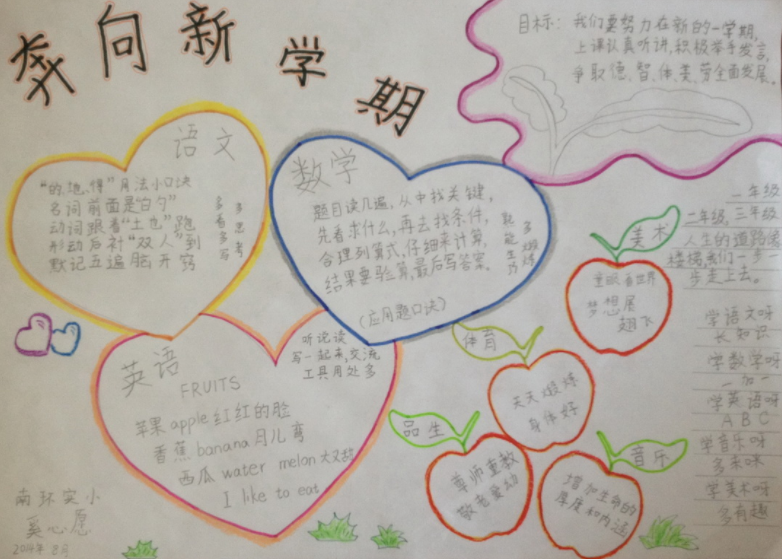 奔向新学期
目标：我们要努力在新的一学期，
上课认真听讲，积极举手发言，
争取德、智、体、美、劳全面发展。
语文
“的、地、得”用法小口诀
名词前面是白勺
动词跟着“土也”跑
形动后补“双人”到
默记五遍脑开窍
多看多写
多思考
数学
题目读几遍，从中找关键，
先看求什么，再去找条件，
合理列算式，仔细来计算，
结果要验算，最后写答案。
（应用题口诀）
熟能生巧
多锻炼
英语
听说读
写一起来，交流
工具用处多
FRUITS
苹果apple红红的脸
香蕉banana月儿弯
西瓜water melon大又甜
I like to eat
美术
重眼看世界
梦想展
翅飞
体育
天天锻炼
身体好
品生
尊师重教
敬老爱幼
音乐
增加生命的
厚度和内涵
一年级
二年级，三年级
人生的道路像
楼梯我们一步
步走上去。
学语文呀
长知识
学数学呀
一加一
学英语呀
A B C
学音乐呀
多来咪
学美术呀
多有趣
南环实小
奚心愿